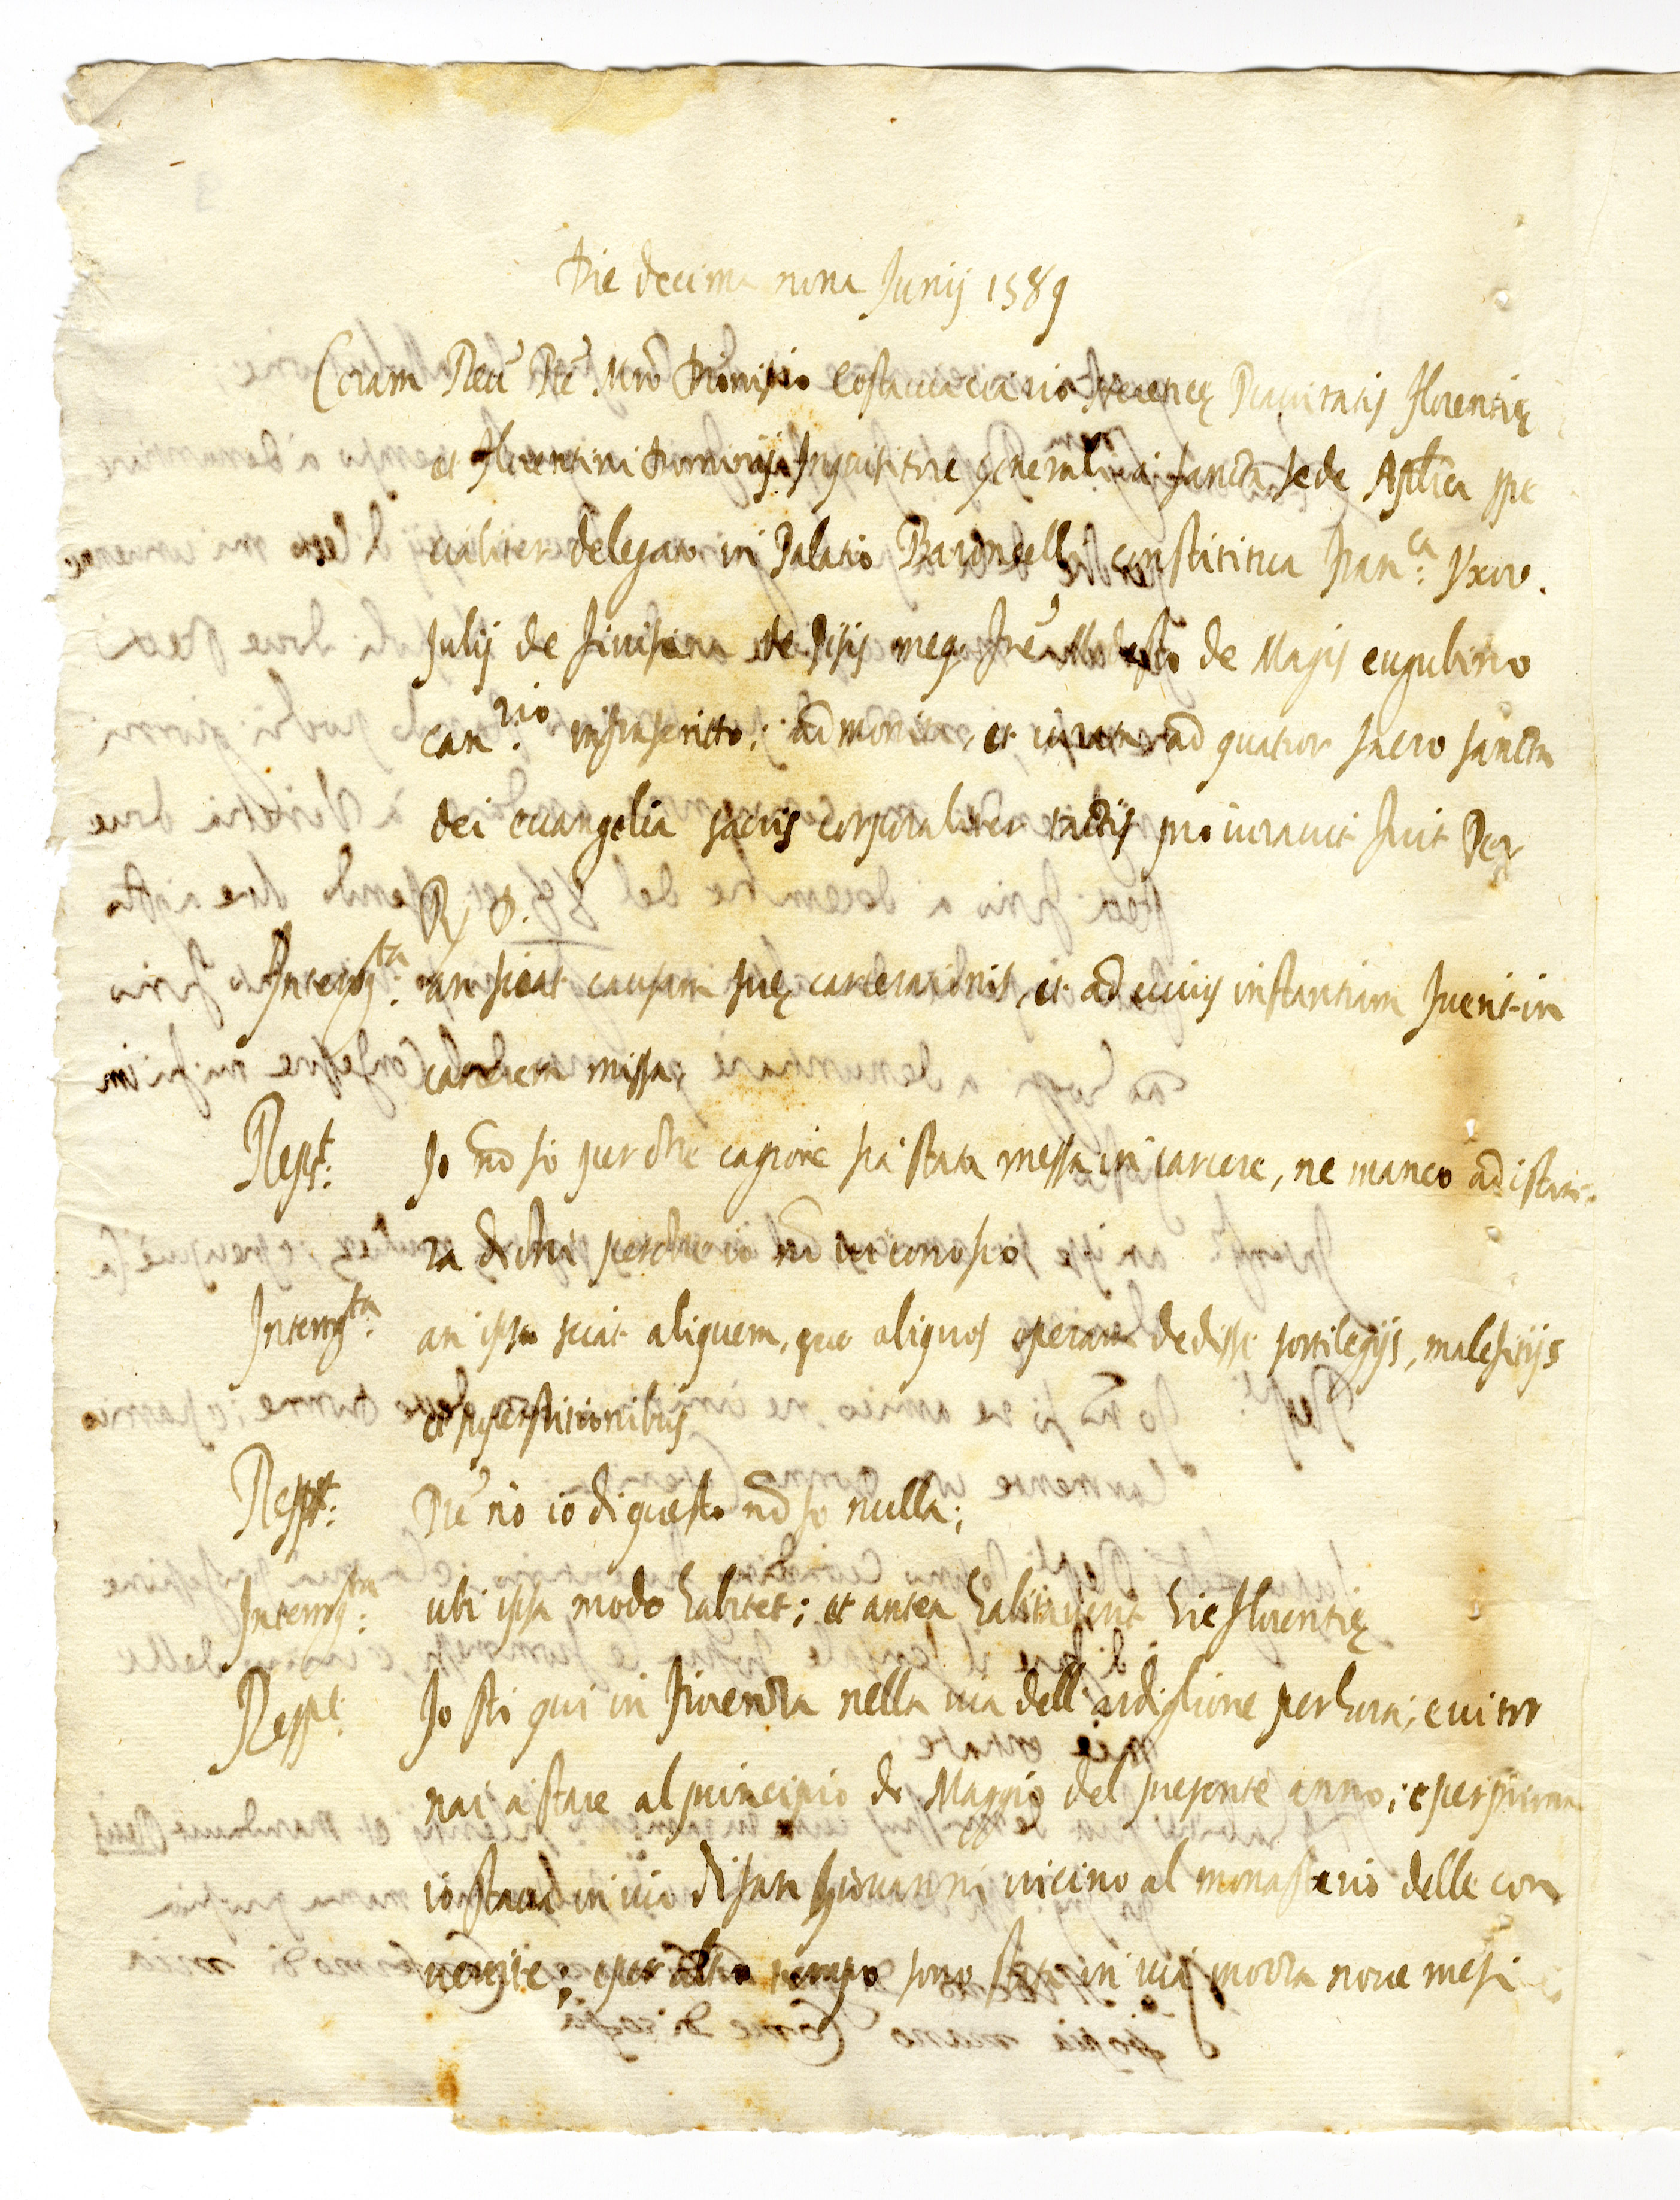 Die decima nona Junij 1589
Coram Reu.^do P̃re Mr̃o Dionisio Costacciario ciuitatis Florentię
et Florentini Dominij Inquisitore generali a sancta sede Apl̃ica spe
cialiter delegato in Palatio Baroncelli constituta Fran.^ca Vxor
Julij de de Pisis meq. Fr̃e de Magis eugubino
can.^rio infrascritto; admonita, et ad quatuor sacro sancta
dei euangelia sacris corporaliter tactis pro iurauit fuit Per
R. P.
Interrog.^ta an sciat causam suę carcerationis, et ad cuius instantiam fuerit in
carcerem missa,
Resp.^t Jo nõ so per che cagione sia stata messa in carcere, ne manco ad istan=
za di chi perche io nõ conosco
Interrog.^ta an ipsa sciat aliquem, que aliquos operam dedisse sortilegijs, maleficijs
et superstitionibus
Resp.^t P̃re nò io di questo nõ so nulla;
Interrog.^ta ubi ipsa modo habitet; et antea habitauerit hic Florentię
Resp.^t Jo sto qui in Firenza nella uia dell'ardiglione per hora; e ui tor
nai a stare al principio di Maggio del presente anno; e per prima
io staua in uia di san Giouanni uicino al monasterio delle con
uertite; e per altro tempo sono stata in uia mozza noue mesi